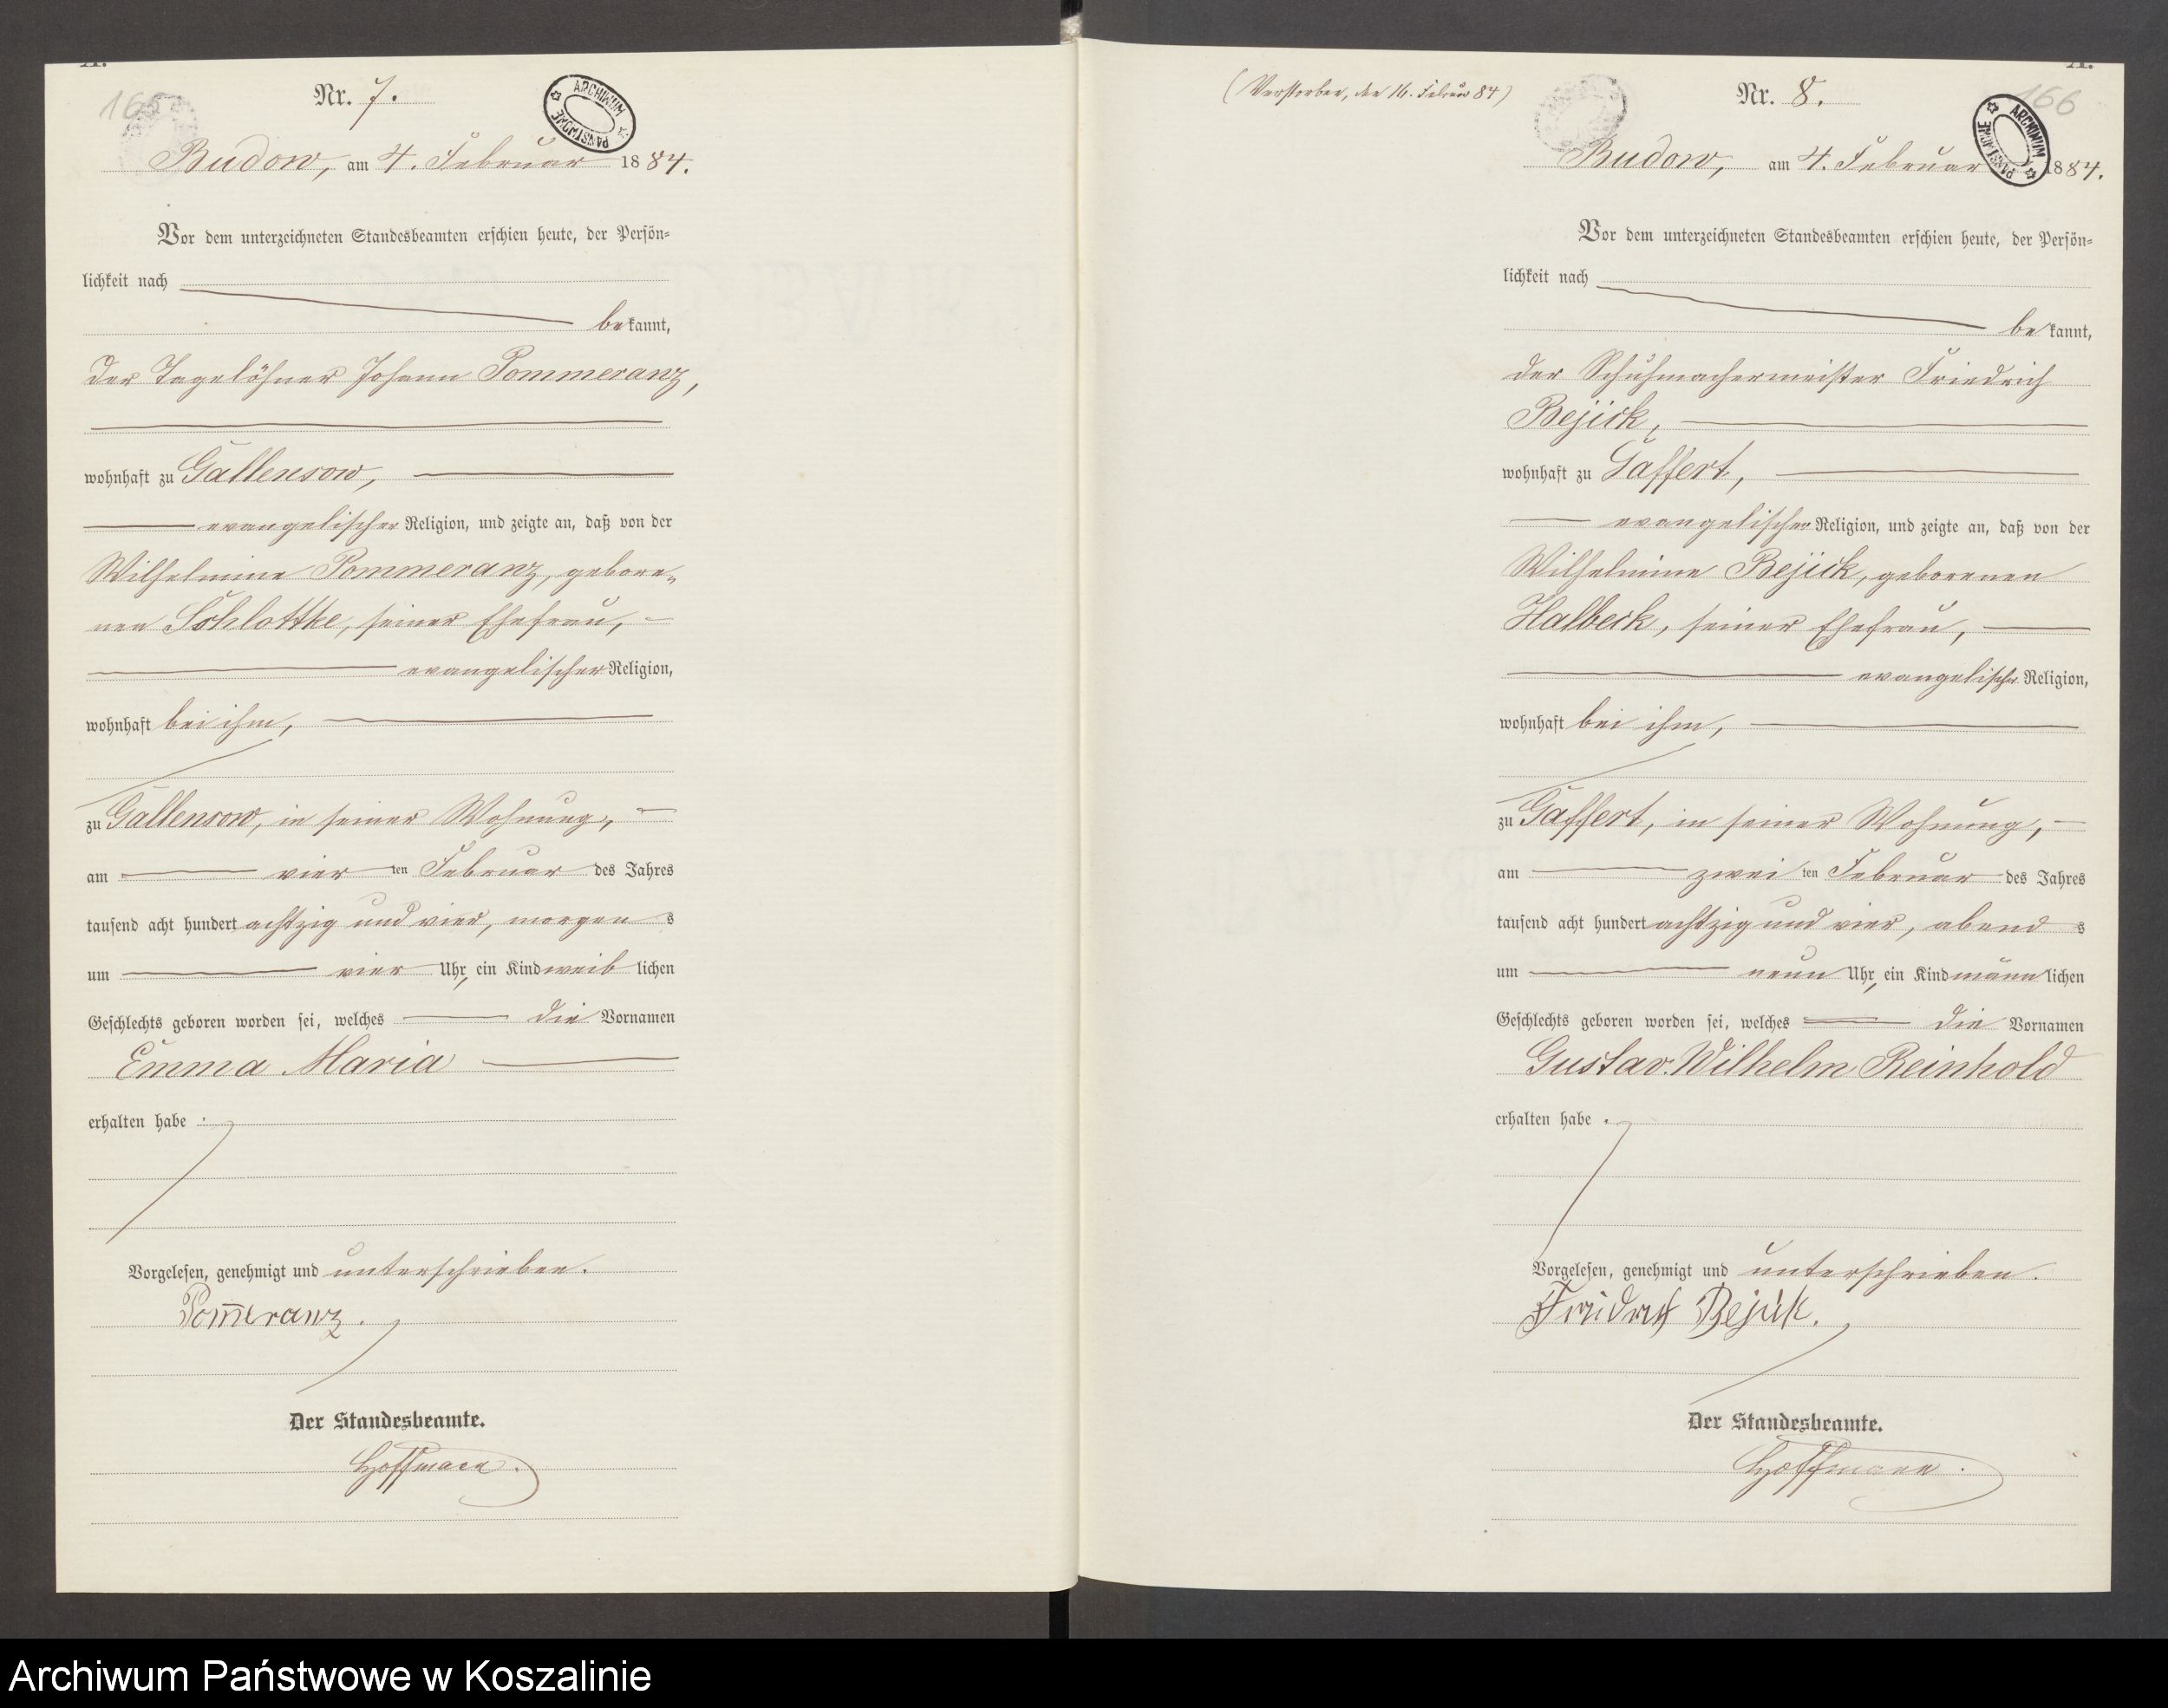 165
Nr. 7.
ARCHIWUM PAŃSTWOWE
Budow, am 4. Februar 1884.
Vor dem unterzeichneten Standesbeamten erschien heute, der Persön-
lichkeit nach
bekannt,
der Tagelöhner Johann Pommeranz,
wohnhaft zu Gallensow,
evangelischer Religion, und zeigte an, daß von der
Wilhelmine Pommeranz, gebore-
nen Schlottke, seiner Ehefrau,
evangelischer Religion,
wohnhaft bei ihm,
zu Gallensow, in seiner Wohnung,
am vierten Februar des Jahres
tausend acht hundert achtzig und vier, morgens
um vier Uhr, ein Kind weiblichen
Geschlechts geboren worden sei, welches die Vornamen
Emma Maria
erhalten habe.
Vorgelesen, genehmigt und unterschrieben.
Pom̅eranz.
Der Standesbeamte.
Hoffmann.
(Verstorben, den 16. Februar 84)
Nr. 8.
166
ARCHIWUM PAŃSTWOWE
Budow, am 4. Februar 1884.
Vor dem unterzeichneten Standesbeamten erschien heute, der Persön-
lichkeit nach
bekannt,
der Schuhmachermeister Friedrich
Bejick,
wohnhaft zu Gaffert,
evangelischer Religion, und zeigte an, daß von der
Wilhelmine Bejick, geborenen
Halbeck, seiner Ehefrau,
evangelischer Religion,
wohnhaft bei ihm,
zu Gaffert, in seiner Wohnung,
am zweiten Februar des Jahres
tausend acht hundert achtzig und vier, abends
um neun Uhr, ein Kind männlichen
Geschlechts geboren worden sei, welches die Vornamen
Gustav Wilhelm Reinhold
erhalten habe.
Vorgelesen, genehmigt und unterschrieben.
Friedrich Bejick.
Der Standesbeamte.
Hoffmann.
Archiwum Państwowe w Koszalinie